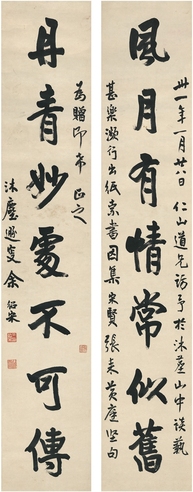 風月有情常似舊
丹青妙處不可傳
卅一年一月廿八日仁山道兄訪予於沐塵山中談藝
甚樂瀕行出紙索書因集宋賢張耒黃庭堅句
為贈即希正之
沐塵遯叟余紹宋